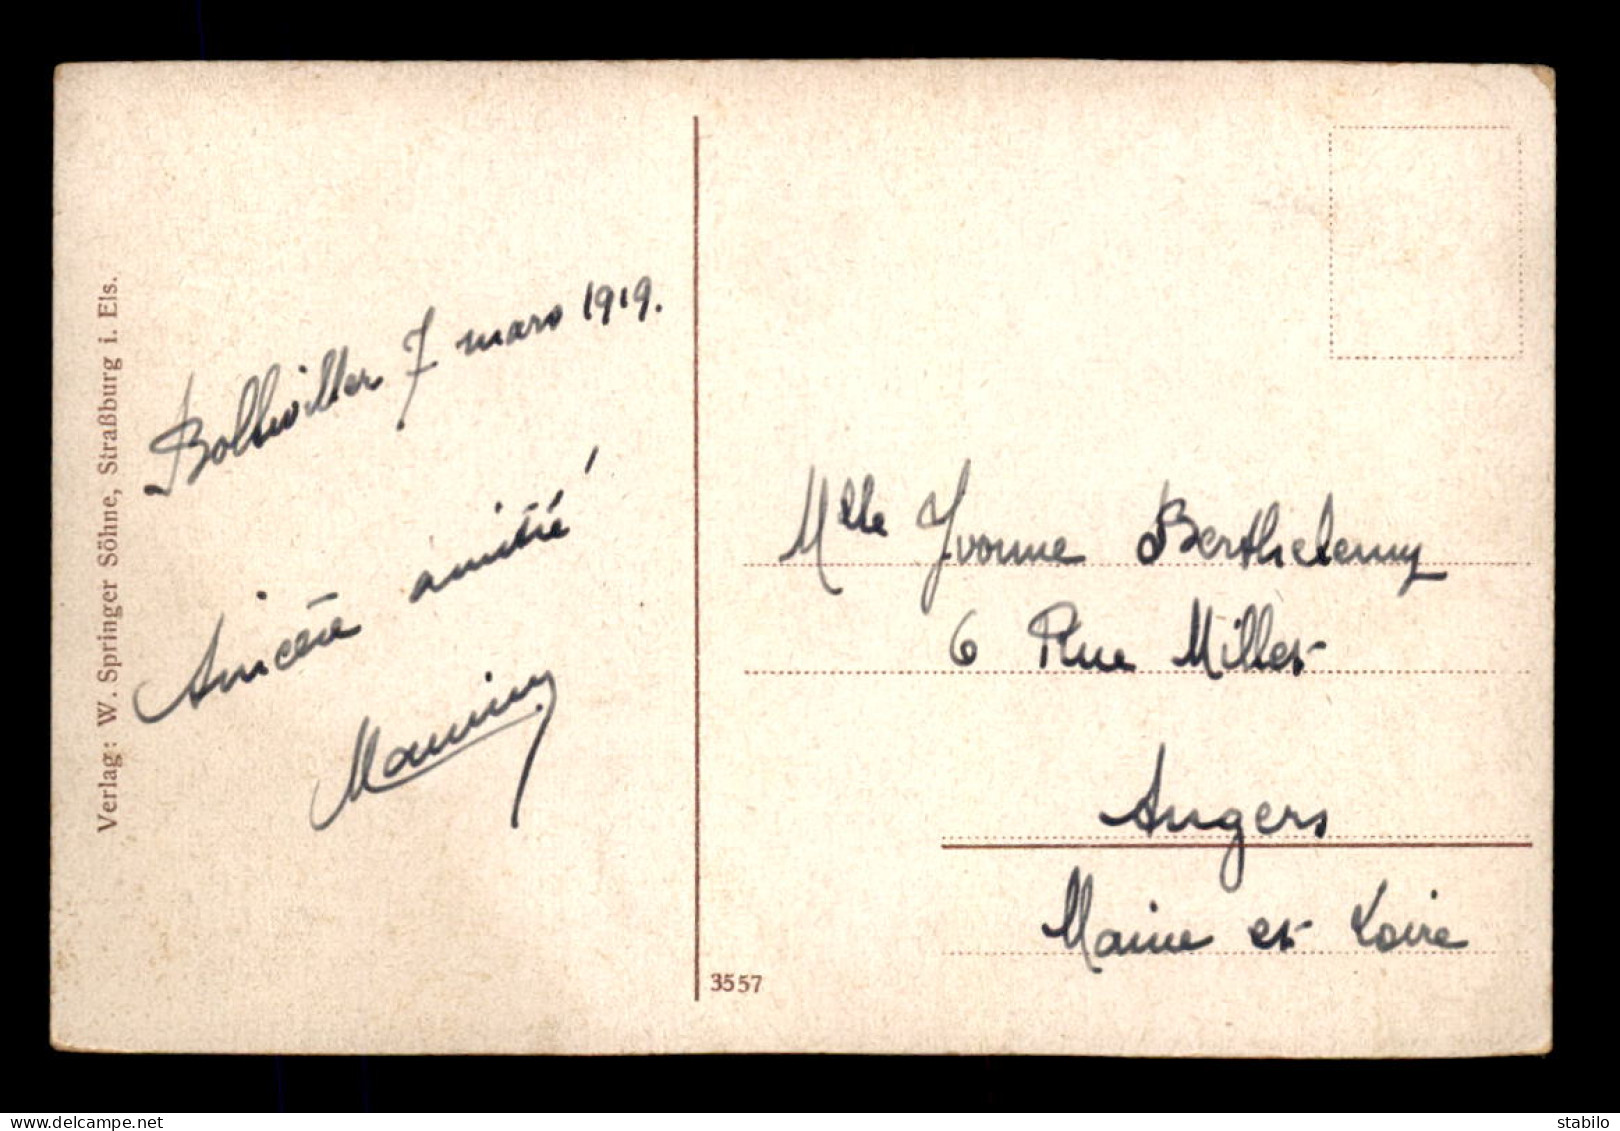 Verlag: W. Springer Söhne, Straßburg i. Els.
Bollwiller 7 mars 1919.
Sincère amitié
Mlle Yvonne Berthelemy
6 Rue Millet
Angers
Maine et Loire
3557
delcampe.net
stabilo